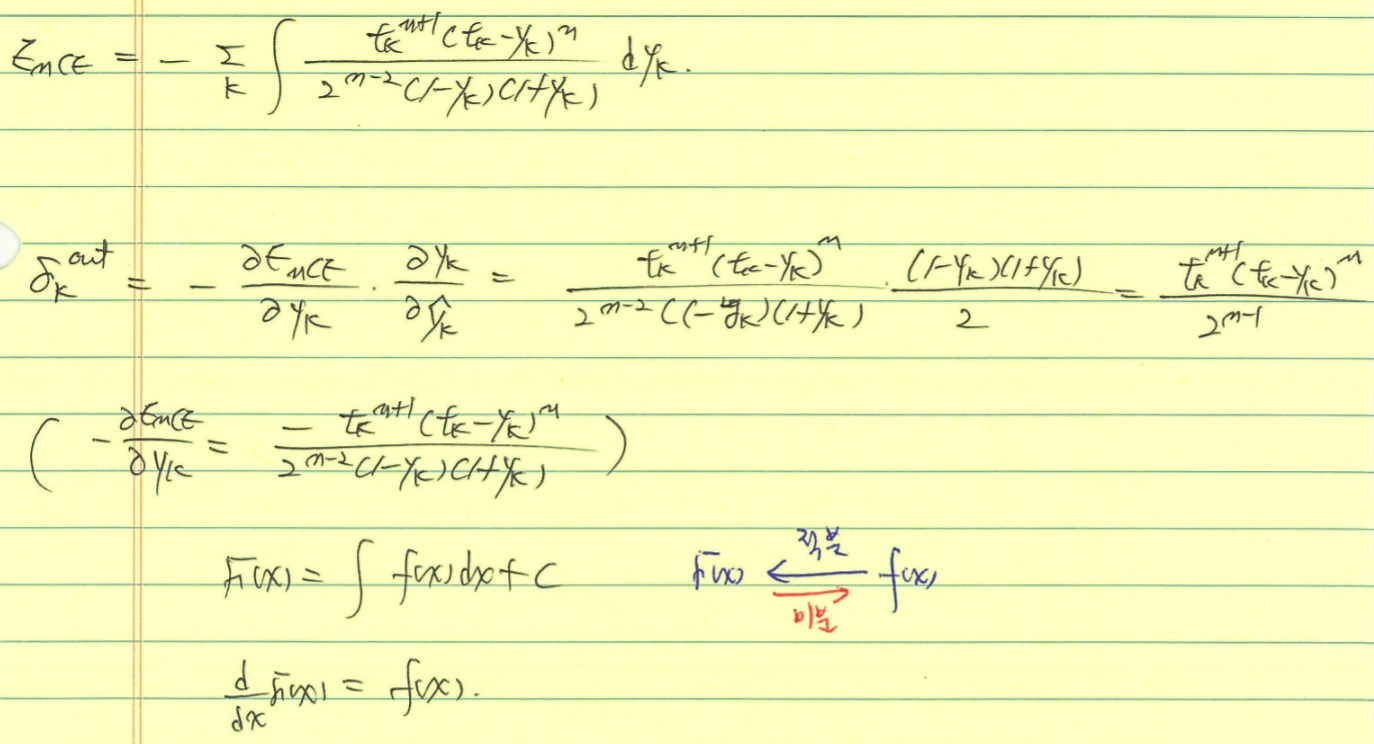 E_{nCE} = - Σ_k ∫ \frac{t_k^{n+1}(t_k-y_k)^n}{2^{n-2}(1-y_k)(1+y_k)} dy_k.
δ_k^{out} = - \frac{∂E_{nCE}}{∂y_k} · \frac{∂y_k}{∂ŷ_k} = \frac{t_k^{n+1}(t_k-y_k)^n}{2^{n-2}(1-y_k)(1+y_k)} · \frac{(1-y_k)(1+y_k)}{2} = \frac{t_k^{n+1}(t_k-y_k)^n}{2^{n-1}}
( - \frac{∂E_{nCE}}{∂y_k} = \frac{- t_k^{n+1}(t_k-y_k)^n}{2^{n-2}(1-y_k)(1+y_k)} )
F(x) = ∫ f(x)dx + C
적분
F(x) ← f(x)
→
미분
\frac{d}{dx}F(x) = f(x).